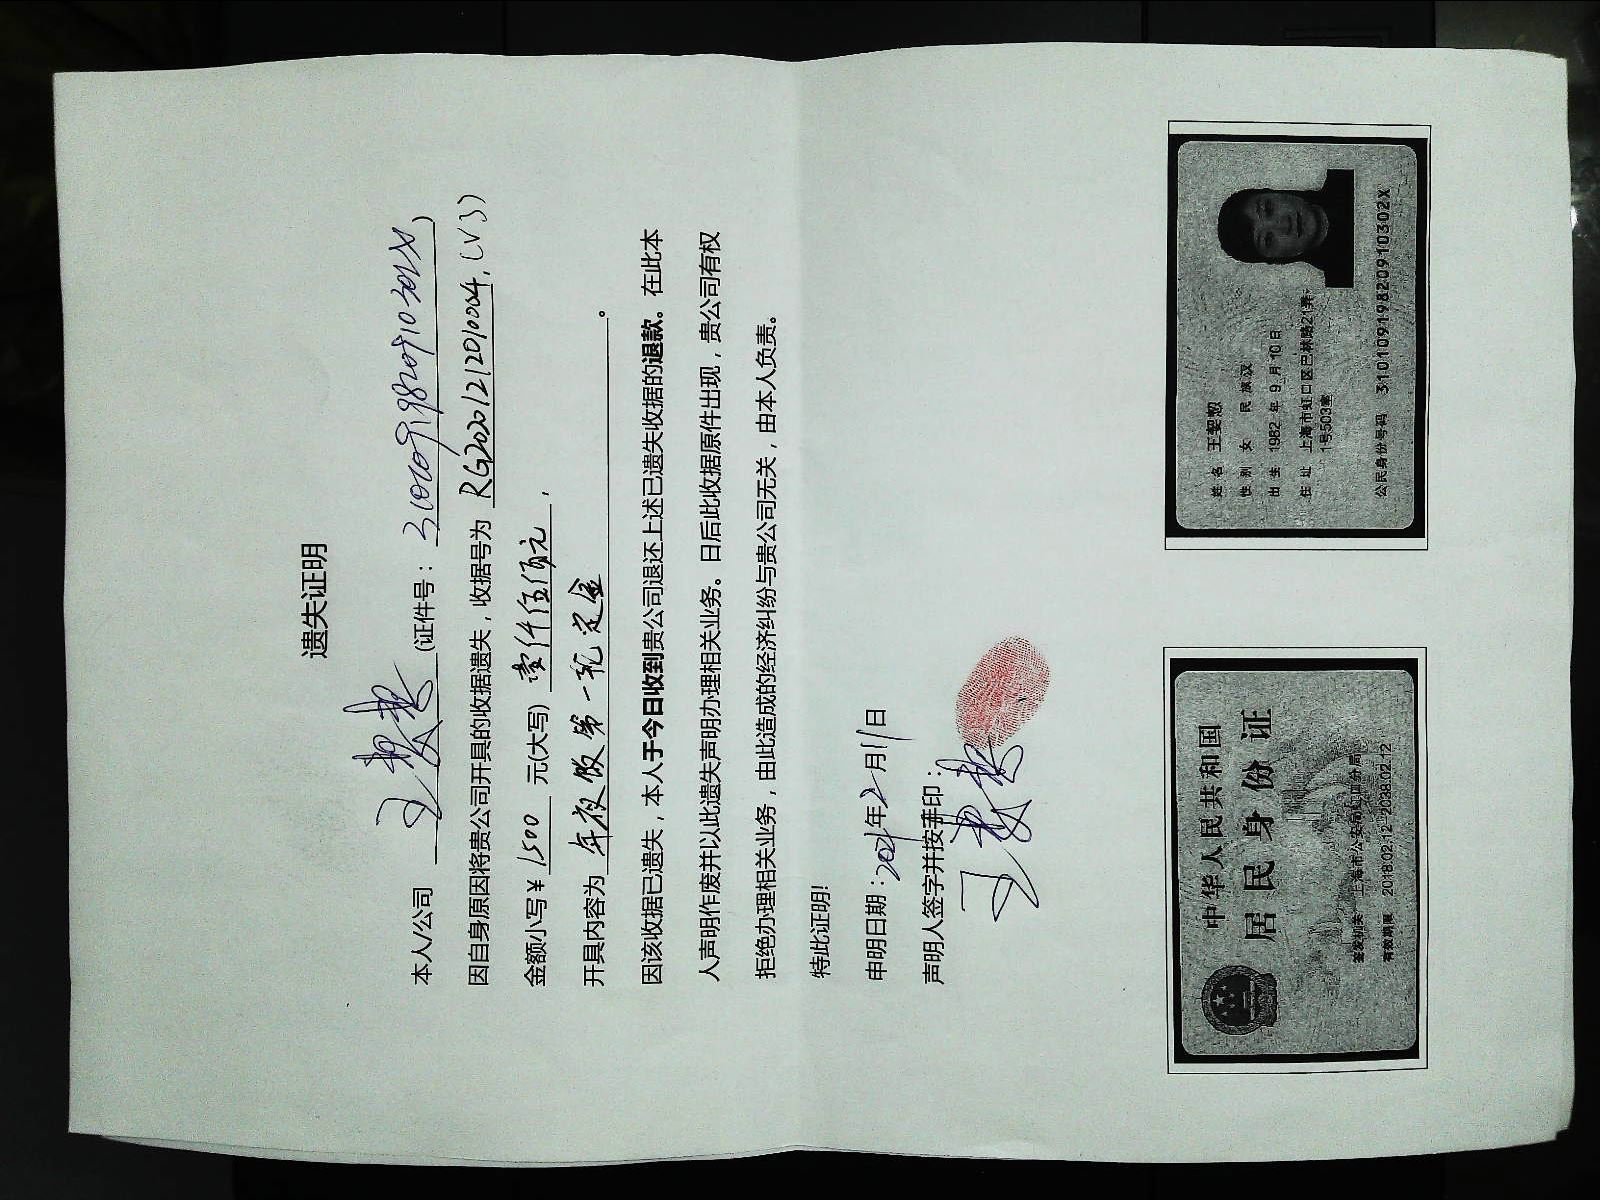 遗失证明
本人/公司 王 (证件号：31010919820910302X)
因自身原因将贵公司开具的收据遗失，收据号为 RG20201212010004,(V3)
金额小写¥ 1500 元(大写) 壹仟伍佰元，
开具内容为 年夜饭第一轮定金。
因该收据已遗失，本人于今日收到贵公司退还上述已遗失收据的退款。在此本
人声明作废并以此遗失声明办理相关业务。日后此收据原件出现，贵公司有权
拒绝办理相关业务，由此造成的经济纠纷与贵公司无关，由本人负责。
特此证明!
申明日期：2021年2月11日
声明人签字并按手印：
王
中华人民共和国
居民身份证
签发机关 上海市公安局虹口分局
有效期限 2018.02.12-2038.02.12
姓名 王
性别 女 民族 汉
出生 1982年9月10日
住址 上海市虹口区巴林路21弄
1号503室
公民身份号码 31010919820910302X